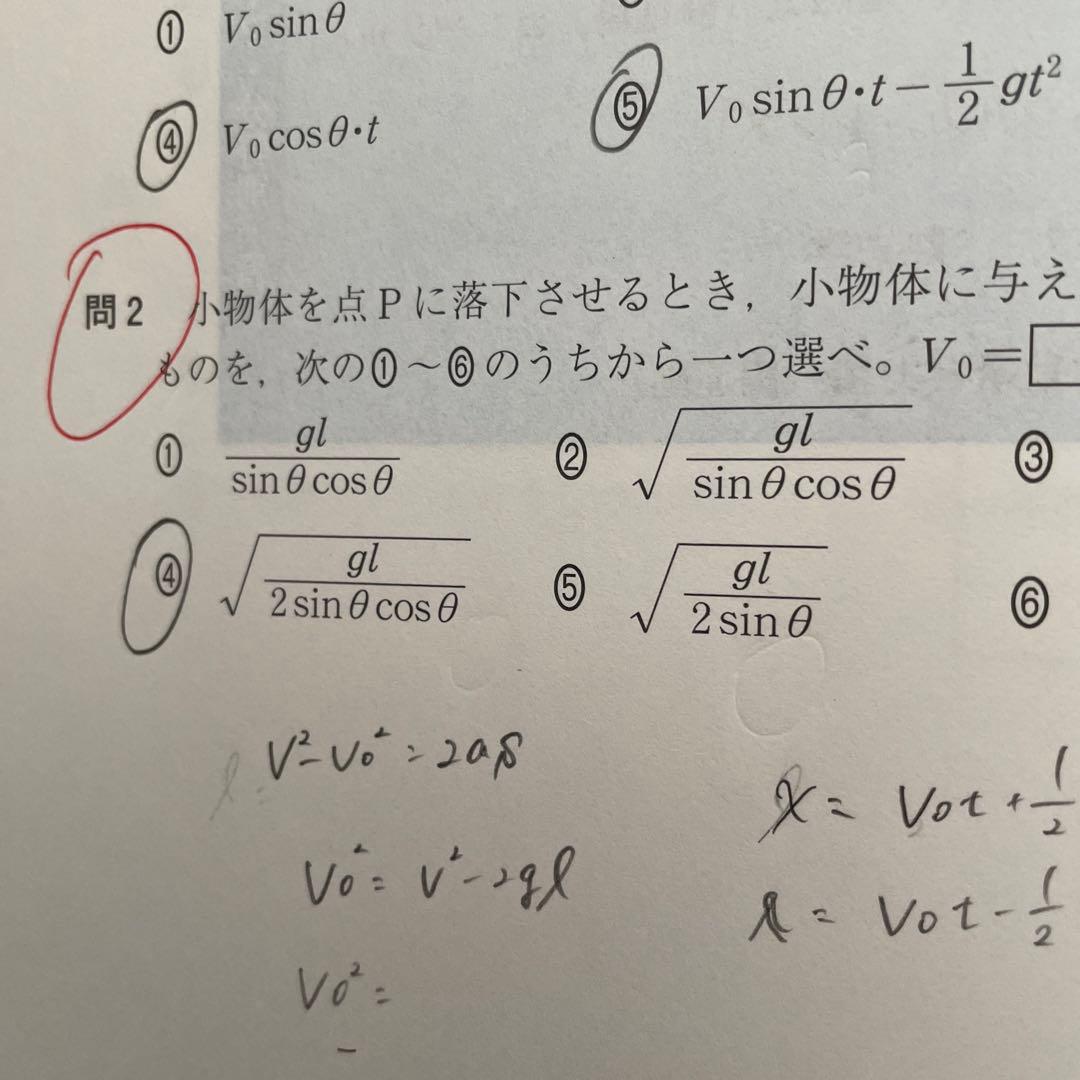 ① V₀ sin θ
④ V₀ cos θ・t ⑤ V₀ sin θ・t − 1/2 gt²
問2 小物体を点Pに落下させるとき，小物体に与え
ものを，次の①～⑥のうちから一つ選べ。V₀ =
① gl/(sin θ cos θ) ② √(gl/(sin θ cos θ)) ③
④ √(gl/(2 sin θ cos θ)) ⑤ √(gl/(2 sin θ)) ⑥
V² − V₀² = 2as
x = V₀t + 1/2
V₀² = V² − 2gl
l = V₀t − 1/2
V₀² =